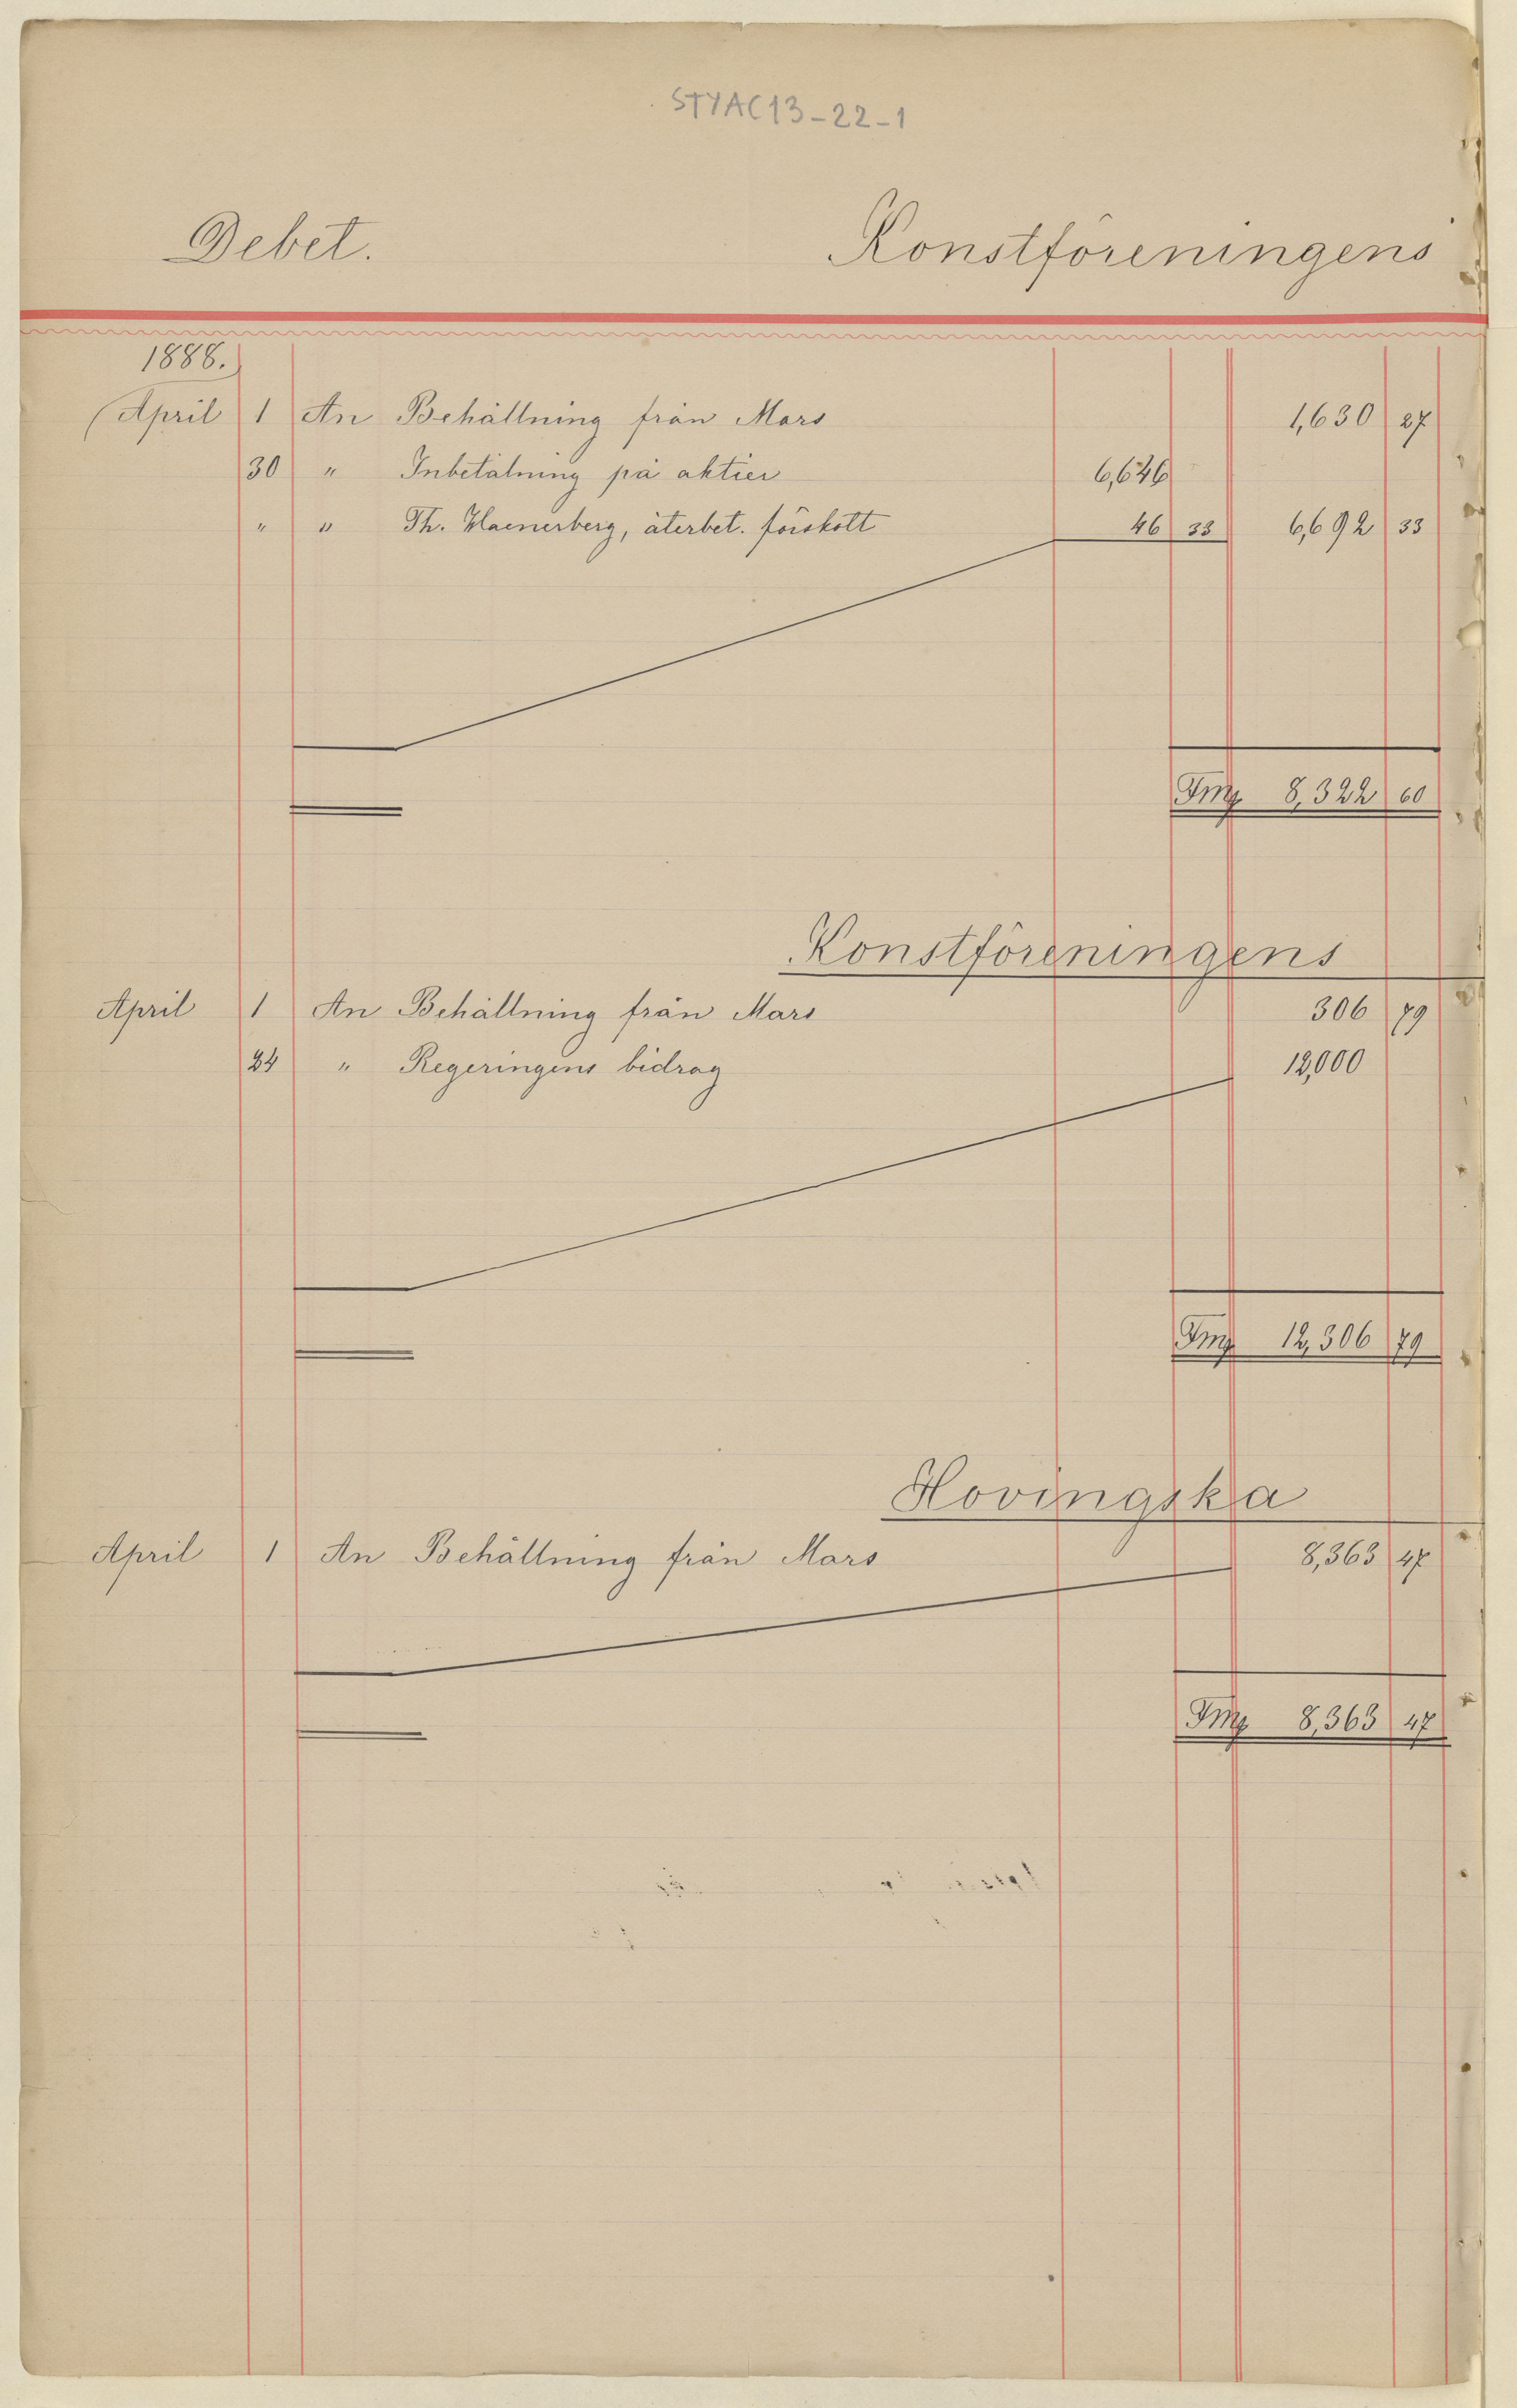 STYAC13-22-1
Debet. Konstföreningens
1888.
April 1 An Behållning från Mars 1,630 27
30 " Inbetalning på aktier 6,646
" " Th. Waenerberg, återbet. förskott 46 33 6,692 33
Fmg 8,322 60
Konstföreningens
April 1 An Behållning från Mars 306 79
24 " Regeringens bidrag 12,000
Fmg 12,306 79
Hovingska
April 1 An Behållning från Mars 8,363 47
Fmg 8,363 47